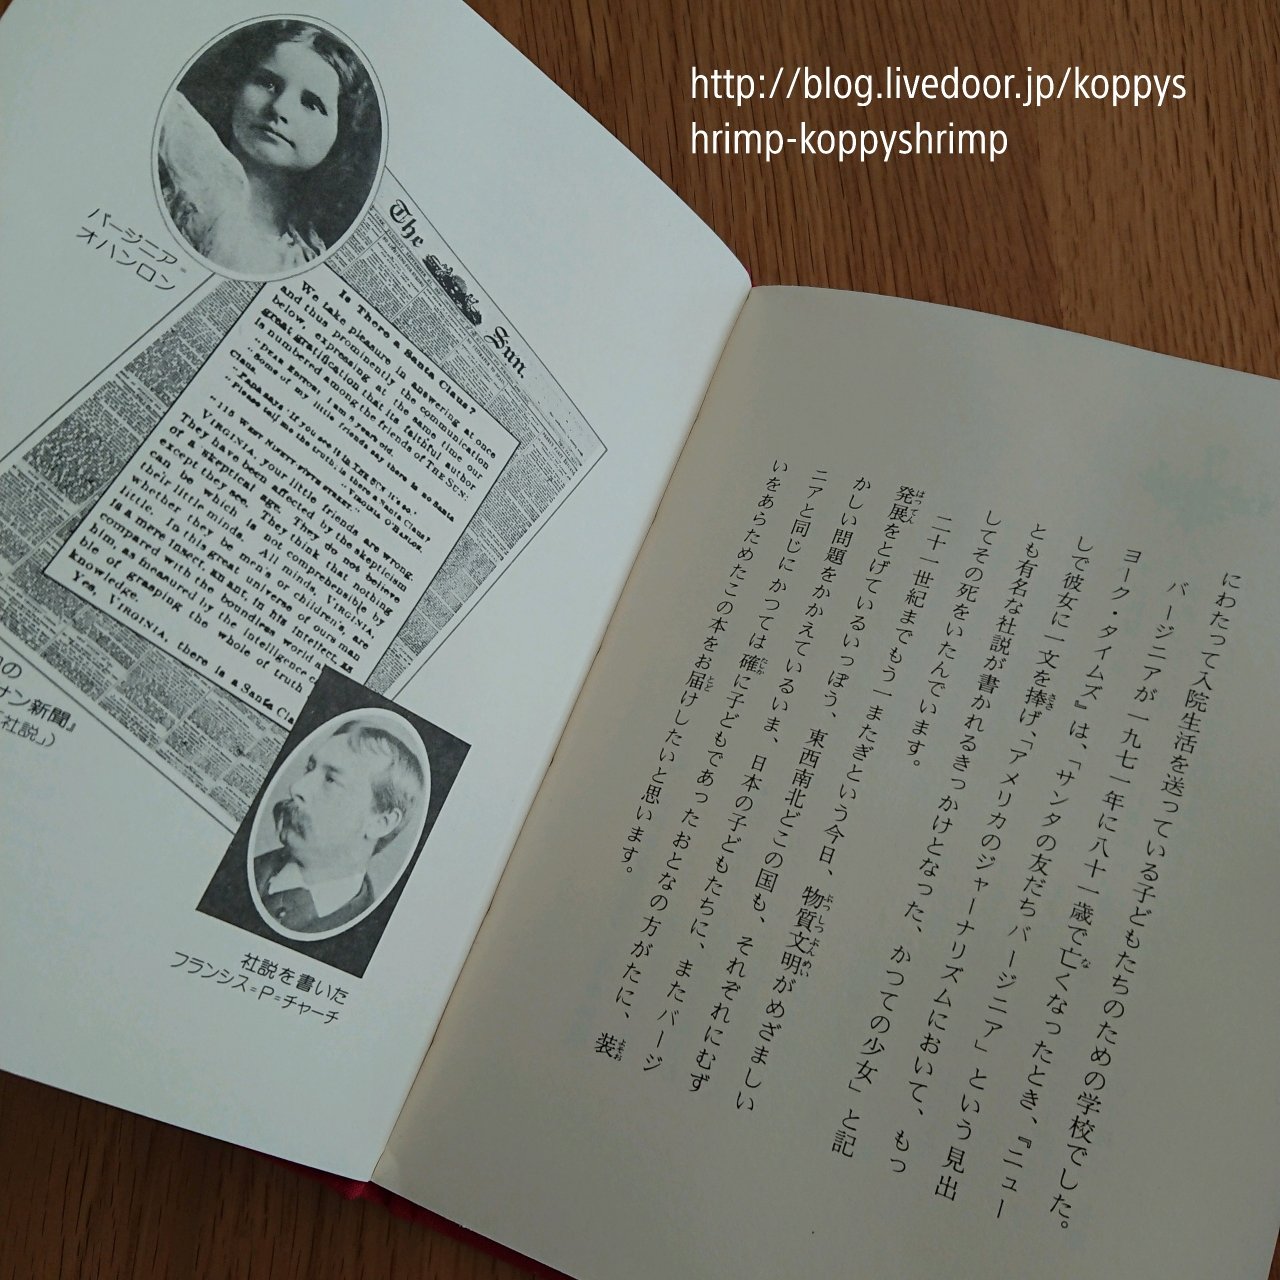 http://blog.livedoor.jp/koppys
hrimp-koppyshrimp
バージニア=
オハンロン
The Sun.
Is There a Santa Claus?
We take pleasure in answering at once
and thus prominently the communication
below, expressing at the same time our
great gratification that its faithful author
is numbered among the friends of THE SUN:
"DEAR EDITOR: I am 8 years old.
"Some of my little friends say there is no Santa
Claus.
"Papa says 'If you see it in THE SUN it's so.'
"Please tell me the truth; is there a Santa Claus?
"VIRGINIA O'HANLON.
"115 WEST NINETY-FIFTH STREET."
VIRGINIA, your little friends are wrong.
They have been affected by the skepticism
of a skeptical age. They do not believe
except they see. They think that nothing
can be which is not comprehensible by
their little minds. All minds, VIRGINIA,
whether they be men's or children's, are
little. In this great universe of ours man
is a mere insect, an ant, in his intellect, as
compared with the boundless world
him, as measured by the intelligence
ble of grasping the whole of truth
knowledge.
Yes, VIRGINIA, there is a Santa Claus
の
サン新聞』
「社説」)
社説を書いた
フランシス=P=チャーチ
にわたって入院生活を送っている子どもたちのための学校でした。
バージニアが一九七一年に八十一歳で亡くなったとき、『ニュー
ヨーク・タイムズ』は、「サンタの友だちバージニア」という見出
しで彼女に一文を捧げ、「アメリカのジャーナリズムにおいて、もっ
とも有名な社説が書かれるきっかけとなった、かつての少女」と記
してその死をいたんでいます。
二十一世紀までもう一またぎという今日、物質文明がめざましい
発展をとげているいっぽう、東西南北どこの国も、それぞれにむず
かしい問題をかかえているいま、日本の子どもたちに、またバージ
ニアと同じにかつては確に子どもであったおとなの方がたに、装
いをあらためたこの本をお届けしたいと思います。